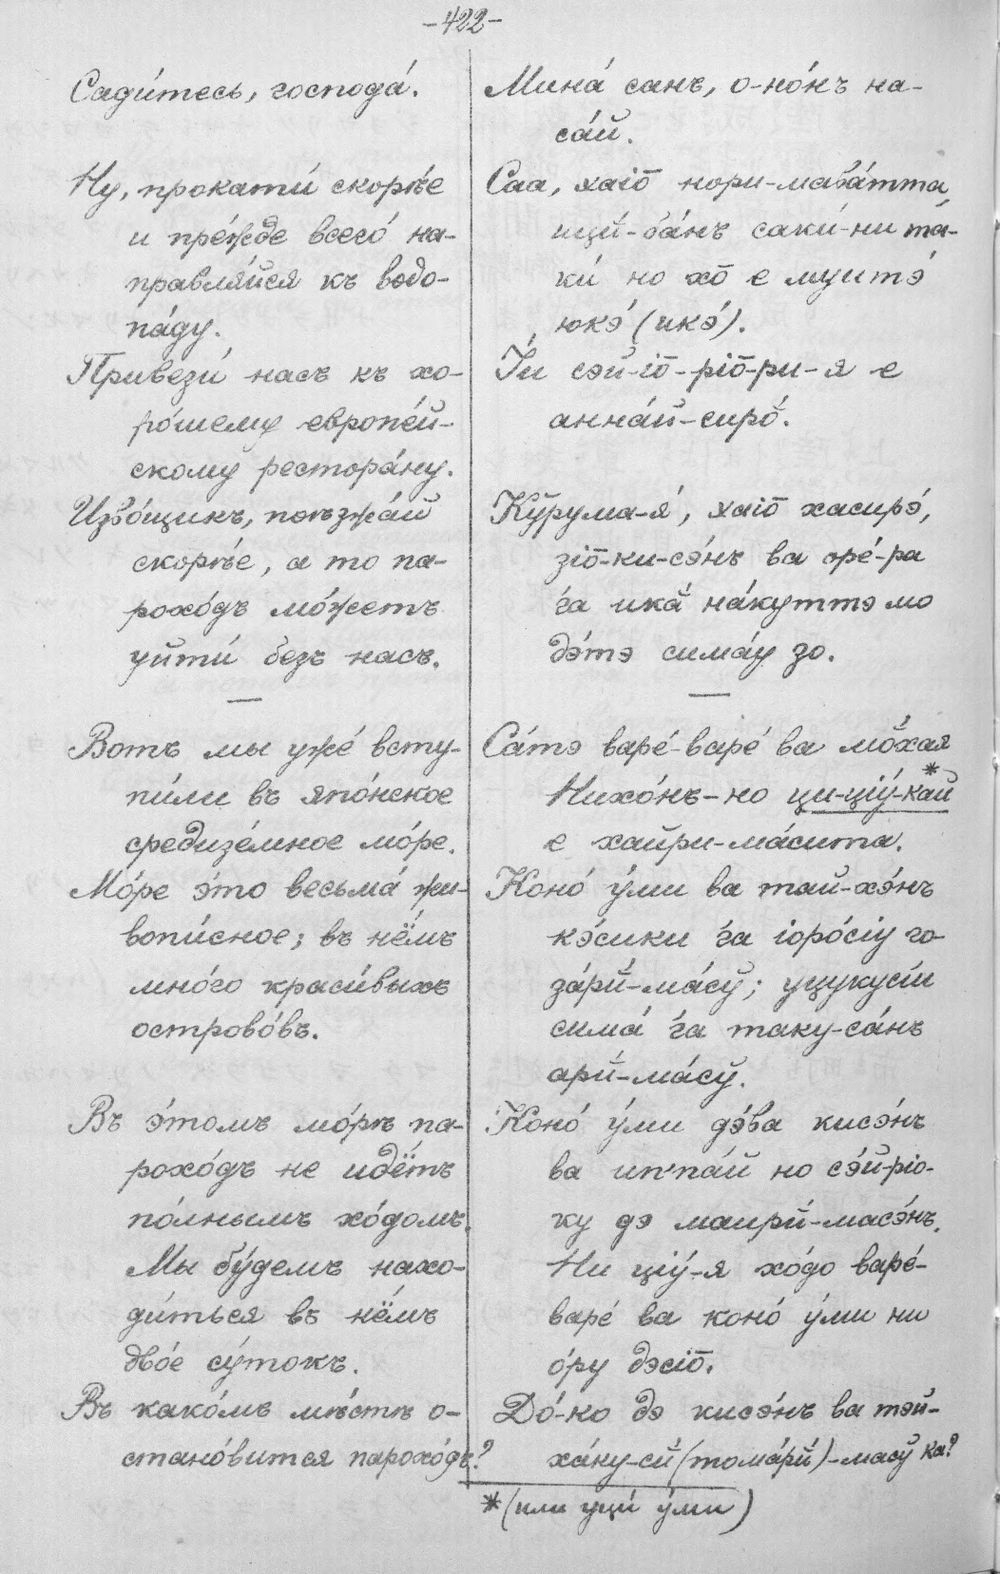 -422-
Сади́тесь, господа́.
Ну, прокати́ скорѣе
и пре́жде всего́ на-
правля́йся къ водо-
па́ду.
Привези́ насъ къ хо-
ро́шему европе́й-
скому рестора́ну.
Изво́щикъ, поѣзжа́й
скорѣе, а то па-
рохо́дъ мо́жетъ
уйти́ безъ насъ.
Вотъ мы уже́ всту-
пи́ли въ япо́нское
средизе́мное мо́ре.
Мо́ре э́то весьма́ жи-
вопи́сное; въ нёмъ
мно́го краси́выхъ
острово́въ.
Въ э́томъ мо́рѣ па-
рохо́дъ не идётъ
по́лнымъ хо́домъ.
Мы бу́демъ нахо-
ди́ться въ нёмъ
дво́е су́токъ.
Въ како́мъ мѣстѣ о-
стано́вится парохо́дъ?
Мина́ санъ, о-но́нъ на-
са́й.
Саа, хаіо̄ нори-мава́тта,
ици́-ба́нъ саки́-ни та́-
ки́ но хо̄ е муитэ́
юкэ́ (икэ́).
І́и сэй-іо̄-ріо̄-ри-я е
анна́й-сиро́.
Курума-я́, хаіо̄ хасирэ́,
зіо̄-ки-сэ́нъ ва орé-ра
га икӑ на́куттэ мо
дэ́тэ сима́у зо.
Са́тэ варе́-варе́ ва мо̆хая
Нихо́нъ-но ци-ціу́-кай*
е хайри-ма́сита.
Коно́ у́ми ва тай-хэ́нъ
кэ́сики га іоро́сіу го-
за́рй-ма́сў; уцукуси́и
сима́ га таку-са́нъ
арй-ма́сў.
Коно́ у́ми дэ́ва кисэ́нъ
ва ип'па́й но сэ́й-ріо-
ку дэ маирй-масэ́нъ.
Ни ціу́-я хо́до варе́-
варе́ ва коно́ у́ми ни
о́ру дэсіо̄.
До́-ко дэ кисэ́нъ ва тэй-
ха́ку-сй (тома́рй)-масў ка?
*(или уци́ у́ми)